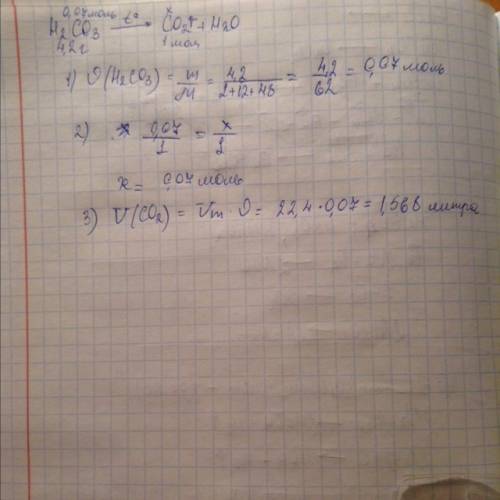 0,07 моль x
H₂CO₃ —t°→ CO₂↑ + H₂O
4,2 г 1 моль
1) ϑ(H₂CO₃) = m/M = 4,2/(2+12+48) = 4,2/62 = 0,07 моль
2) 0,07/1 = x/1
x = 0,07 моль
3) V(CO₂) = Vm · ϑ = 22,4 · 0,07 = 1,568 литра